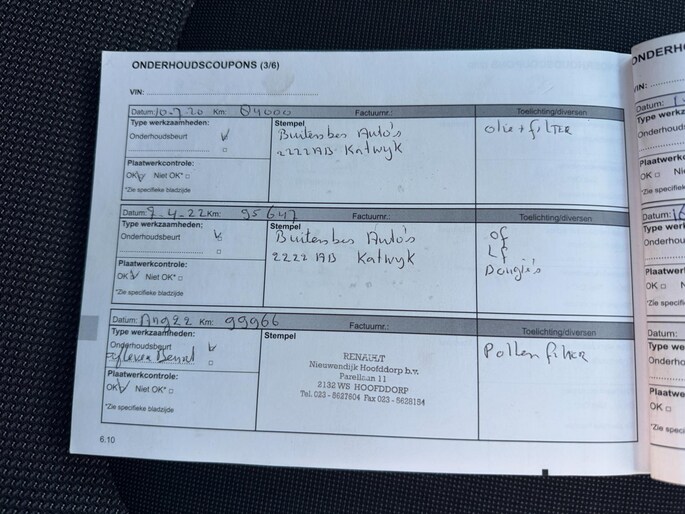 ONDERHOUDSCOUPONS (3/6)
VIN:
Datum: 10-7-20 Km: 84000 Factuurnr.: Toelichting/diversen
Type werkzaamheden: Stempel
Onderhoudsbeurt Auto's olie + filTER
2222AB Katwyk
Plaatwerkcontrole:
OK Niet OK*
*Zie specifieke bladzijde
Datum: 7-4-22 Km: 95647 Factuurnr.: Toelichting/diversen
Type werkzaamheden: Stempel
Onderhoudsbeurt Auto's of
2222 AB Katwyk Lf
Plaatwerkcontrole:
OK Niet OK*
*Zie specifieke bladzijde
Datum: Aug 22 Km: 99966 Factuurnr.: Toelichting/diversen
Type werkzaamheden: Stempel
Onderhoudsbeurt Pollen filter
RENAULT
Nieuwendijk Hoofddorp b.v.
Parellaan 11
2132 WS HOOFDDORP
Tel. 023 - 5627604 Fax 023 - 5628154
Plaatwerkcontrole:
OK Niet OK*
*Zie specifieke bladzijde
6.10
ONDERH
VIN:
Datum:
Type werk
Onderhouds
Plaatwerk
OK Nie
*Zie specifiek
Datum:
Type werk
Onderhou
Plaatwer
OK Ni
*Zie specifi
Datum:
Type we
Onderho
Plaatwe
OK
*Zie speci